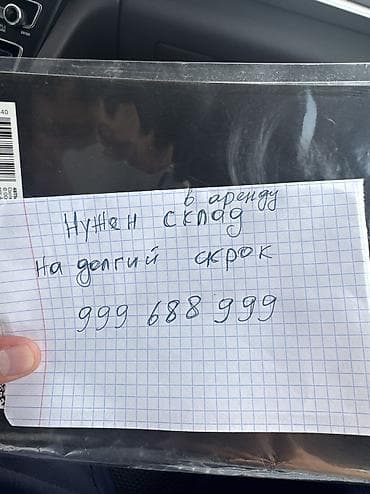 в аренду
Нужен склад
На долгий скрок
999 688 999
40